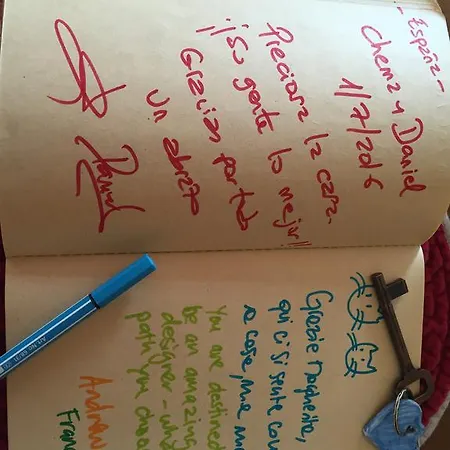 - España -
Chema y Daniel
1/7/2016
Preciosa la casa.
¡¡Su gente lo mejor!!
Gracias por todo
Un abrazo
Daniel
Grazie Margherita,
qui ci si sente co
a casa, mia m
You are destined
be an amazing
designer - wh
path you choo
Andrew
Fran